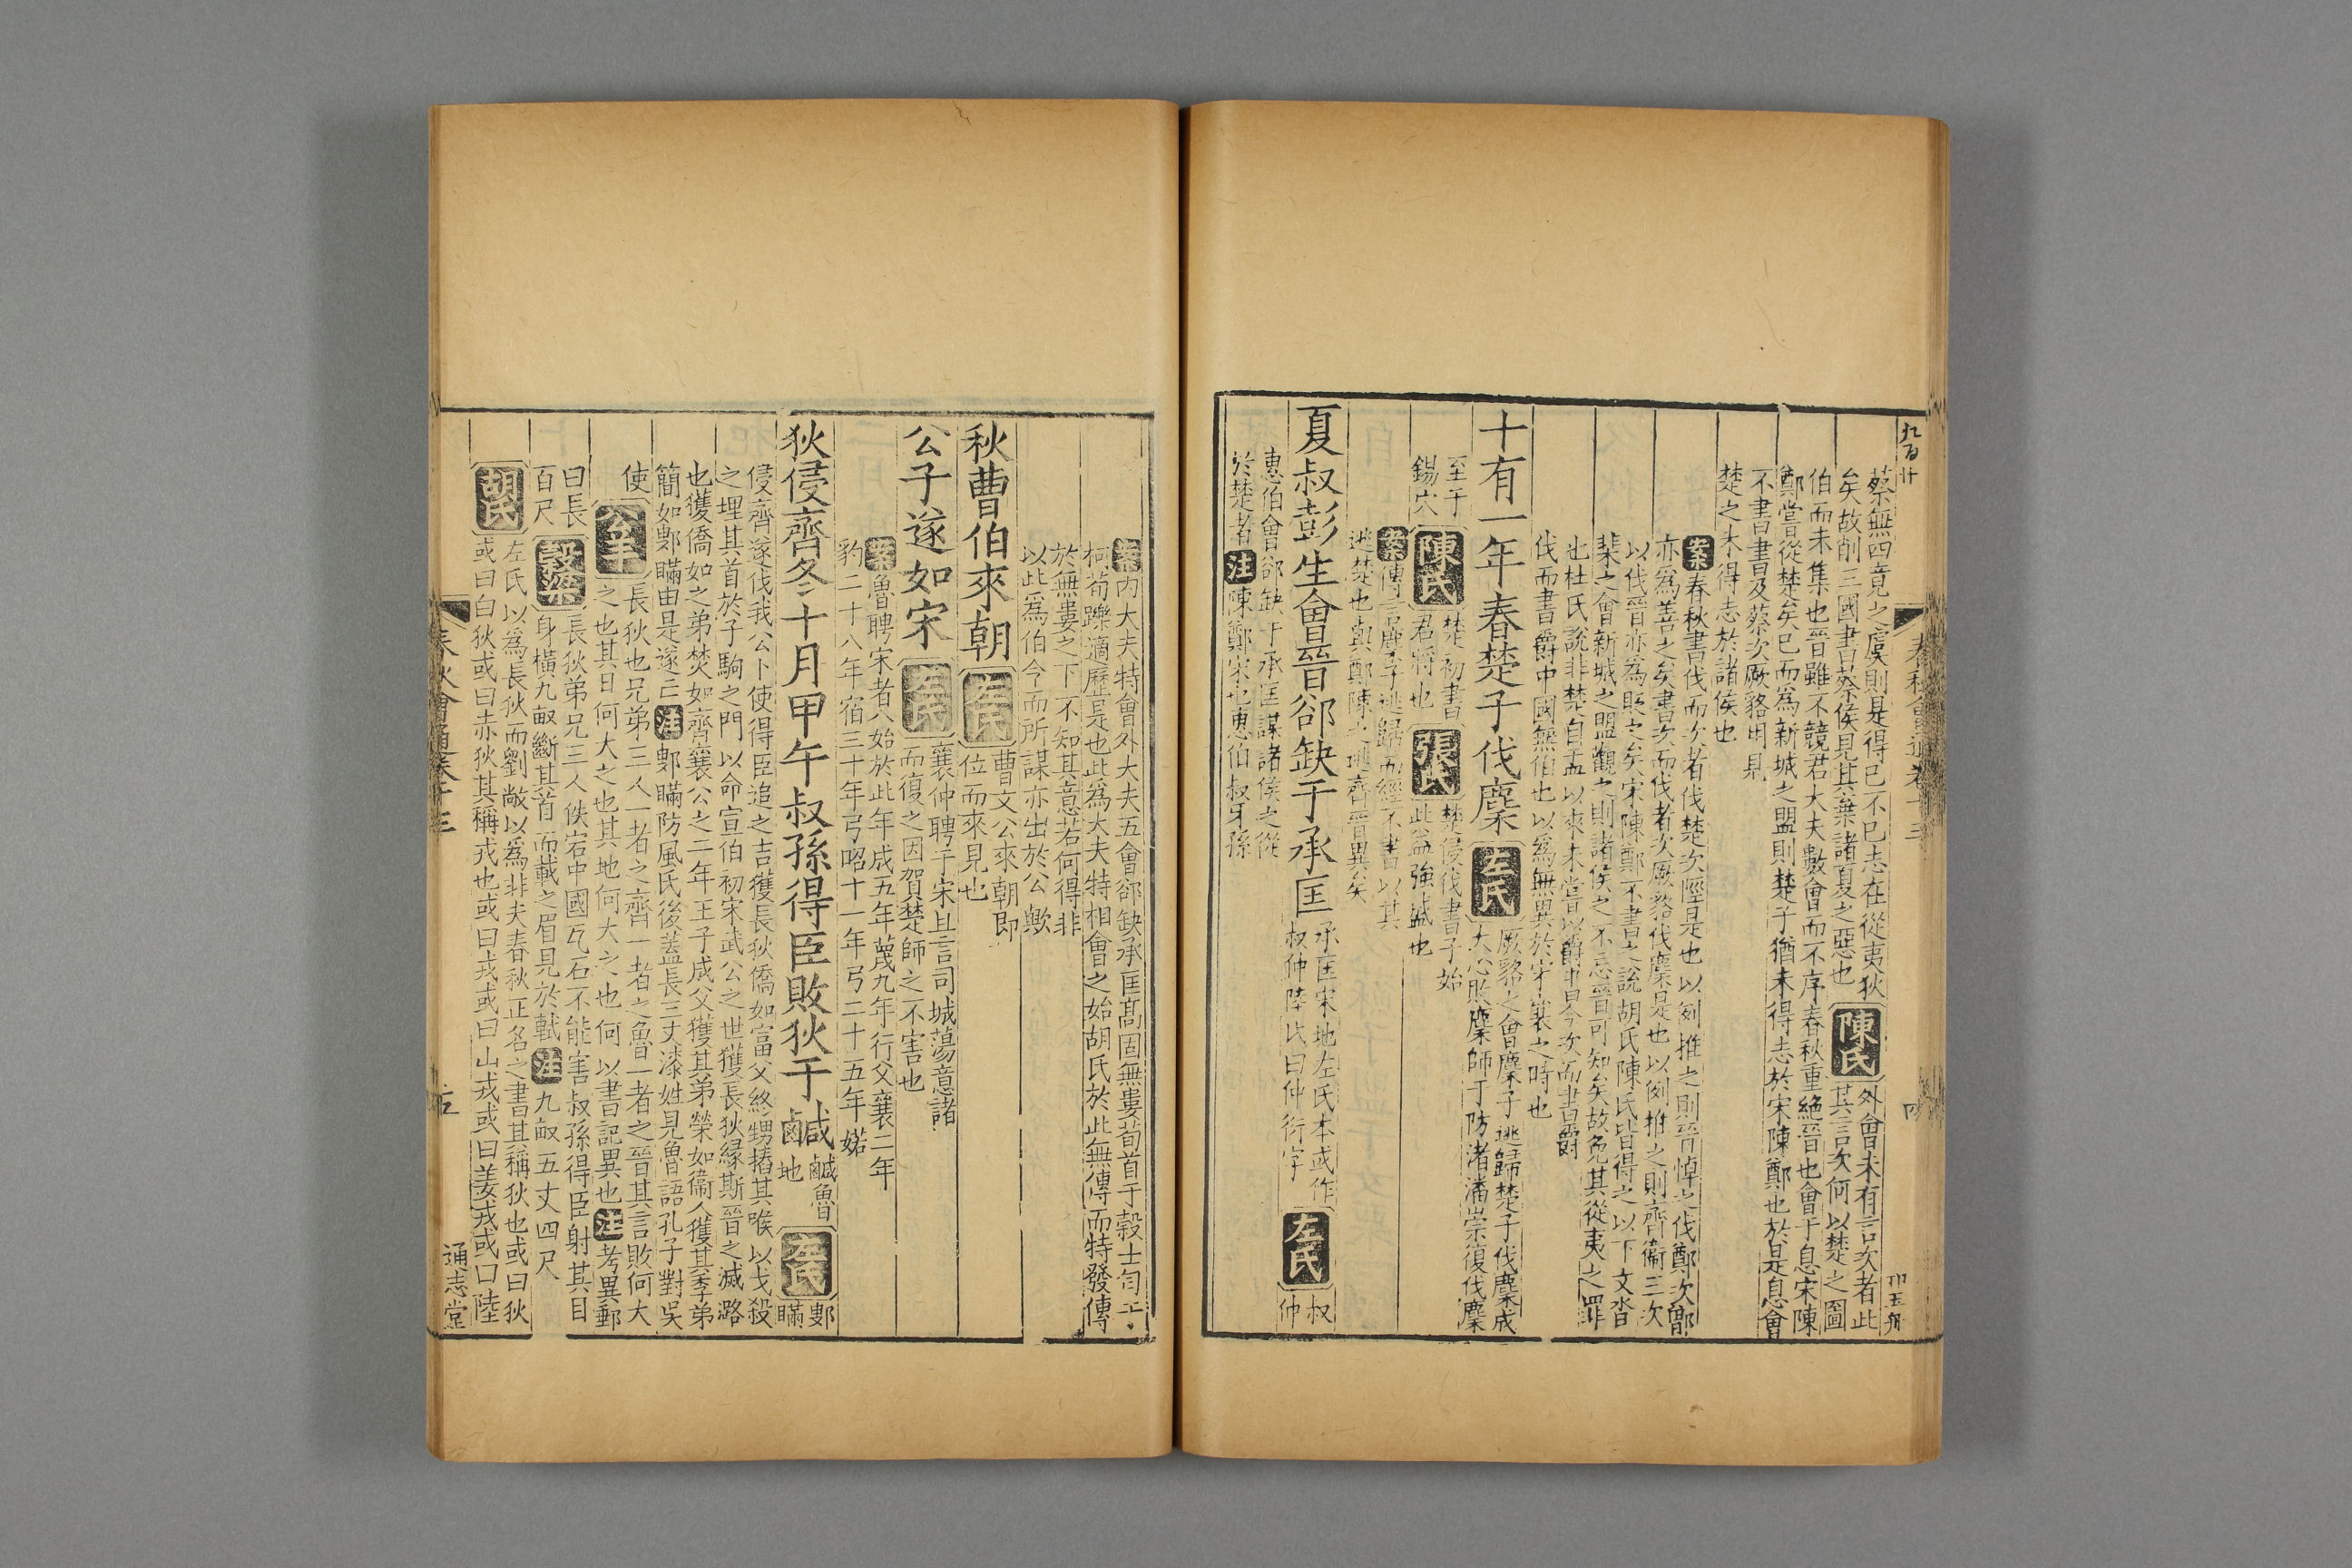 九百廿
春秋會通卷十三
四
蔡無四竟之虞則是得已不已志在從夷狄
矣故削三國書曰蔡侯見其棄諸夏之惡也
陳氏
外會未有言次者此
其言次何以楚之圖
伯而未集也晉雖不競君大夫數會而不序春秋重絕晉也會于息宋陳
鄭嘗從楚矣已而為新城之盟則楚子猶未得志於宋陳鄭也於是息會
不書書及蔡次厥貉明
楚之未得志於諸侯也
案春秋書伐而次者伐楚次陘是也以例推之則晉悼之伐鄭次鄫
亦為善之矣書次而伐者次厥貉伐麇是也以例推之則齊衞三次
以伐晉亦為貶之矣宋陳鄭不書之說胡氏陳氏皆得之以下文沓
棐之會新城之盟觀之則諸侯之不忘晉可知矣故免其從夷之罪
也杜氏說非楚自盂以來未嘗以爵書今次而書爵
伐而書爵中國無伯也以為無異於宋襄之時也
十有一年春楚子伐麇
左氏
厥貉之會麇子逃歸楚子伐麇成
大心敗麇師于防渚潘崇復伐麇
至于
錫穴
陳氏
楚初書
君將也
張氏
楚侵伐書子始
此益強盛也
案傳言麇子逃歸而經不書以其
逃楚也與鄭陳之逃齊晉異矣
夏叔彭生會晉郤缺于承匡
承匡宋地左氏本或作
叔仲陸氏曰仲衍字
左氏
叔
仲
惠伯會郤缺于承匡謀諸侯之從
於楚者注陳鄭宋也惠伯叔牙孫
案内大夫特會外大夫五會郤缺承匡高固無婁荀首于榖士匄于
柯荀躒適歷是也此為大夫特相會之始胡氏於此無傳而特發傳
於無婁之下不知其意若何得非
以此為伯令而所謀亦出於公歟
秋曹伯來朝
左氏
曹文公來朝即
位而來見也
公子遂如宋
左氏
襄仲聘于宋且言司城蕩意諸
而復之因賀楚師之不害也
案魯聘宋者八始於此年成五年蔑九年行父襄二年
豹二十八年宿三十年弓昭十一年弓二十五年婼
狄侵齊冬十月甲午叔孫得臣敗狄于鹹
鹹魯
地
左氏
鄋
瞞
侵齊遂伐我公卜使得臣追之吉獲長狄僑如富父終甥摏其喉以戈殺
之埋其首於子駒之門以命宣伯初宋武公之世獲長狄緣斯晉之滅潞
也獲僑如之弟焚如齊襄公之二年王子成父獲其弟榮如衞人獲其季弟
簡如鄋瞞由是遂亡注鄋瞞防風氏後蓋長三丈漆姓見魯語孔子對吳
使
公羊
長狄也兄弟三人一者之齊一者之魯一者之晉其言敗何大
之也其日何大之也其地何大之也何以書記異也注考異郵
曰長
百尺
穀梁
長狄弟兄三人佚宕中國瓦石不能害叔孫得臣射其目
身橫九畝斷其首而載之眉見於軾注九畝五丈四尺
胡氏
左氏以為長狄而劉敞以為非夫春秋正名之書其稱狄也或曰狄
或曰白狄或曰赤狄其稱戎也或曰戎或曰山戎或曰姜戎或曰陸
春秋會通卷十三
五
通志堂